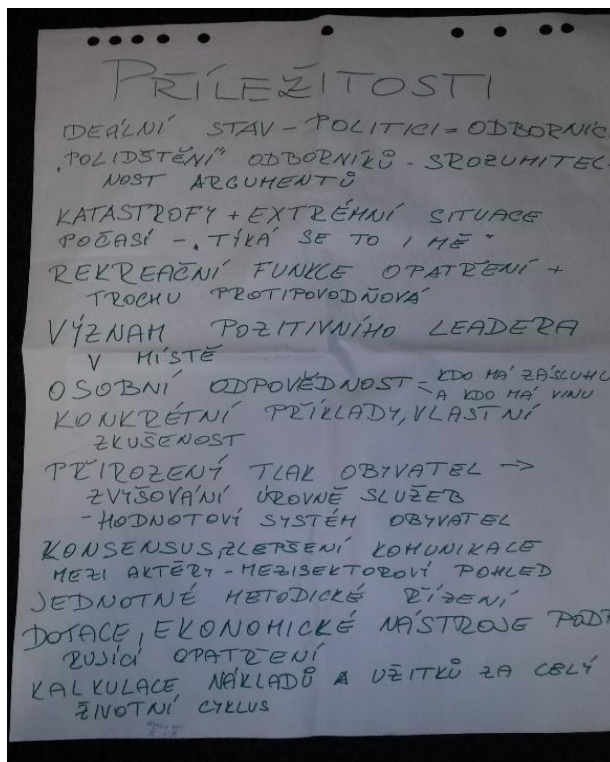 PŘÍLEŽITOSTI
IDEÁLNÍ STAV - POLITICI = ODBORNÍC
"POLIDŠTĚNÍ" ODBORNÍKŮ - SROZUMITEL-
NOST ARGUMENTŮ
KATASTROFY + EXTRÉMNÍ SITUACE
POČASÍ - "TÝKÁ SE TO I MĚ"
REKREAČNÍ FUNKCE OPATŘENÍ +
TROCHU PROTIPOVODŇOVÁ
VÝZNAM POZITIVNÍHO LEADERA
V MÍSTĚ
OSOBNÍ ODPOVĚDNOST - KDO MÁ ZÁSLUHU
A KDO MÁ VINU
KONKRÉTNÍ PŘÍKLADY, VLASTNÍ
ZKUŠENOST
PŘIROZENÝ TLAK OBYVATEL →
ZVYŠOVÁNÍ ÚROVNĚ SLUŽEB
- HODNOTOVÝ SYSTÉM OBYVATEL
KONSENSUS, ZLEPŠENÍ KOMUNIKACE
MEZI AKTÉRY - MEZISEKTOROVÝ POHLED
JEDNOTNÉ METODICKÉ ŘÍZENÍ
DOTACE, EKONOMICKÉ NÁSTROJE PODP
RUJÍCÍ OPATŘENÍ
KALKULACE NÁKLADŮ A UŽITKŮ ZA CELÝ
ŽIVOTNÍ CYKLUS